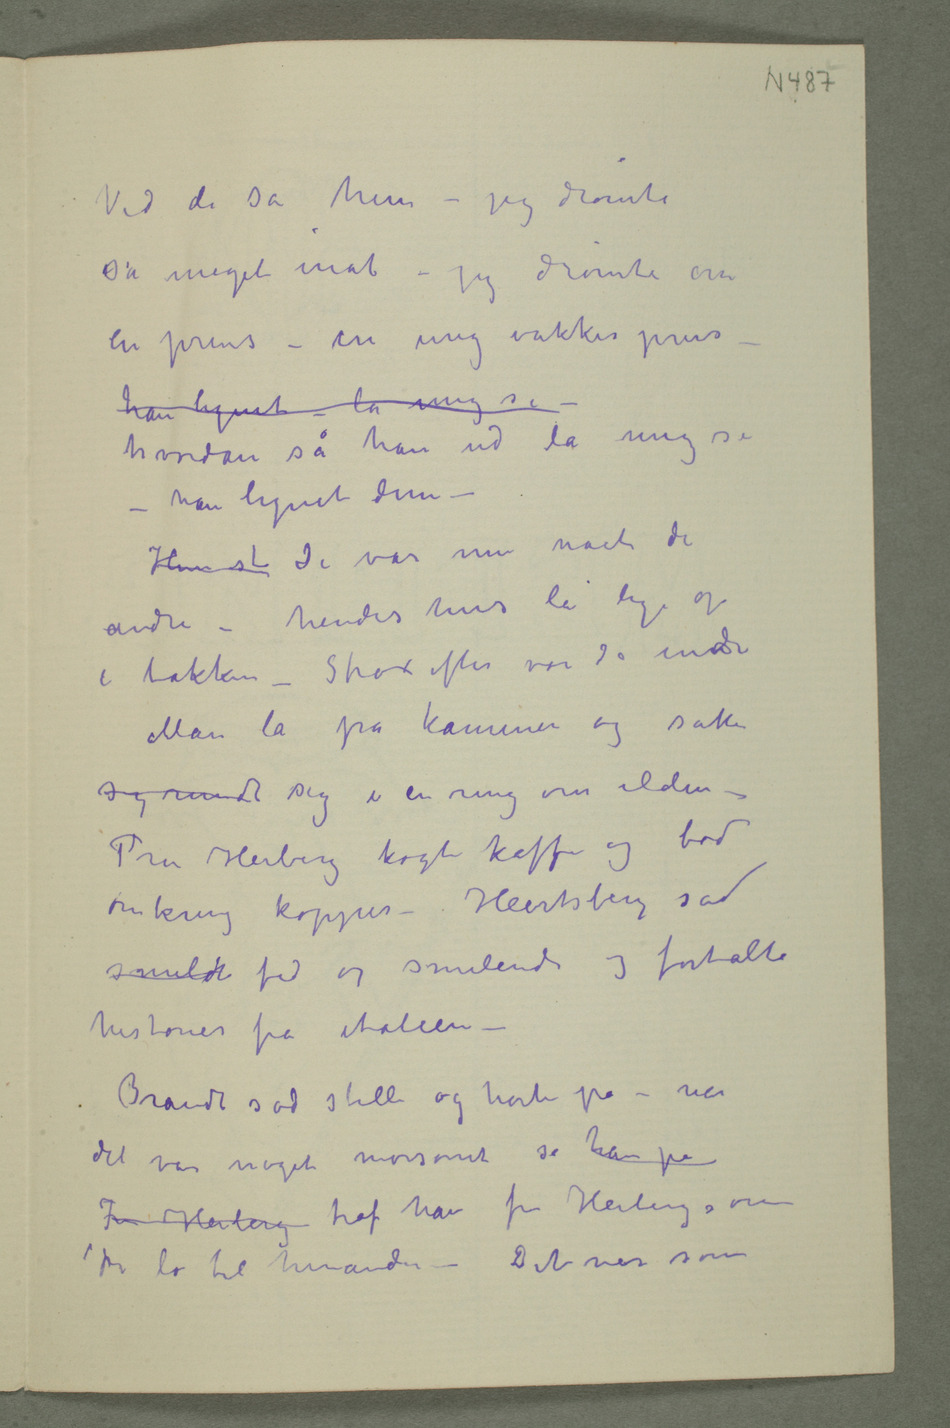 N487
Ved de sa hun – jeg drømte
så meget inat – jeg drømte om
en prins – en ung vakker prins –
han lignet – la mig se –
hvordan så han ud la mig se
– han lignet dem –
De var nu nået de
andre – hendes hus lå lige op
i bakken – Strax efter var de inde
Man la på kaminen og satte
sig rundt sig i en ring om ilden –
Fru Heiberg kogte kaffe og bød
omkring kopper – Hertsberg sad
smeldt fed og smilende og fortalte
historier fra italien –
Brandt sad stille og hørte på – når
det var noget morsomt så han på
Fru Heiberg traf han fru Heibergs øine
De lo til hinanden – Det var som